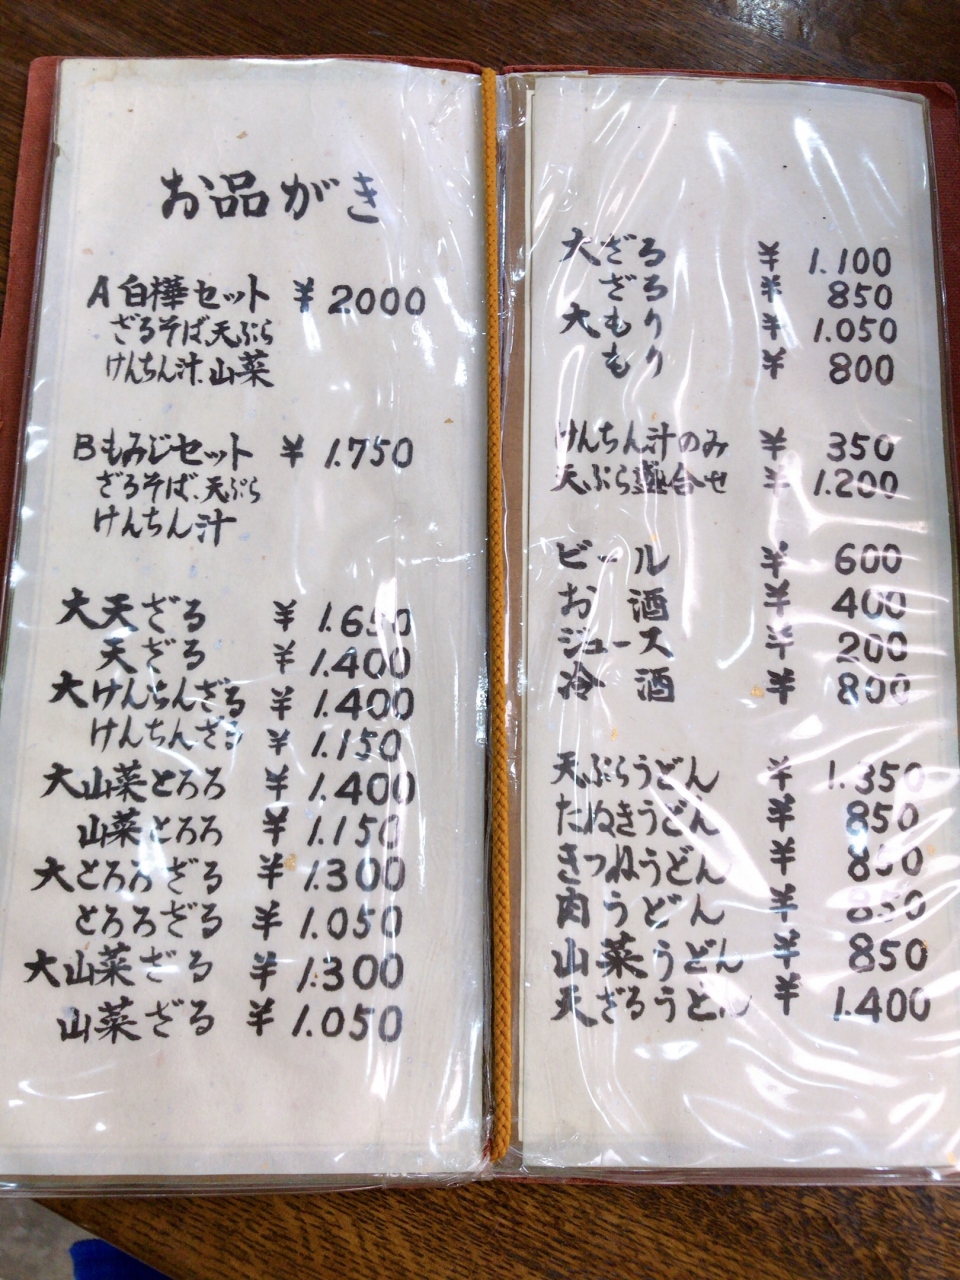 お品がき
A白樺セット ¥2000
ざるそば、天ぷら
けんちん汁、山菜
Bもみじセット ¥1.750
ざるそば、天ぷら
けんちん汁
大天ざる ¥1.650
天ざる ¥1.400
大けんちんざる ¥1.400
けんちんざる ¥1.150
大山菜とろろ ¥1.400
山菜とろろ ¥1.150
大とろろざる ¥1.300
とろろざる ¥1.050
大山菜ざる ¥1.300
山菜ざる ¥1.050
大ざる ¥1.100
ざる ¥850
大もり ¥1.050
もり ¥800
けんちん汁のみ ¥350
天ぷら盛合せ ¥1.200
ビール ¥600
お酒 ¥400
ジュース ¥200
冷酒 ¥800
天ぷらうどん ¥1.350
たぬきうどん ¥850
きつねうどん ¥850
肉うどん ¥850
山菜うどん ¥850
天ざるうどん ¥1.400